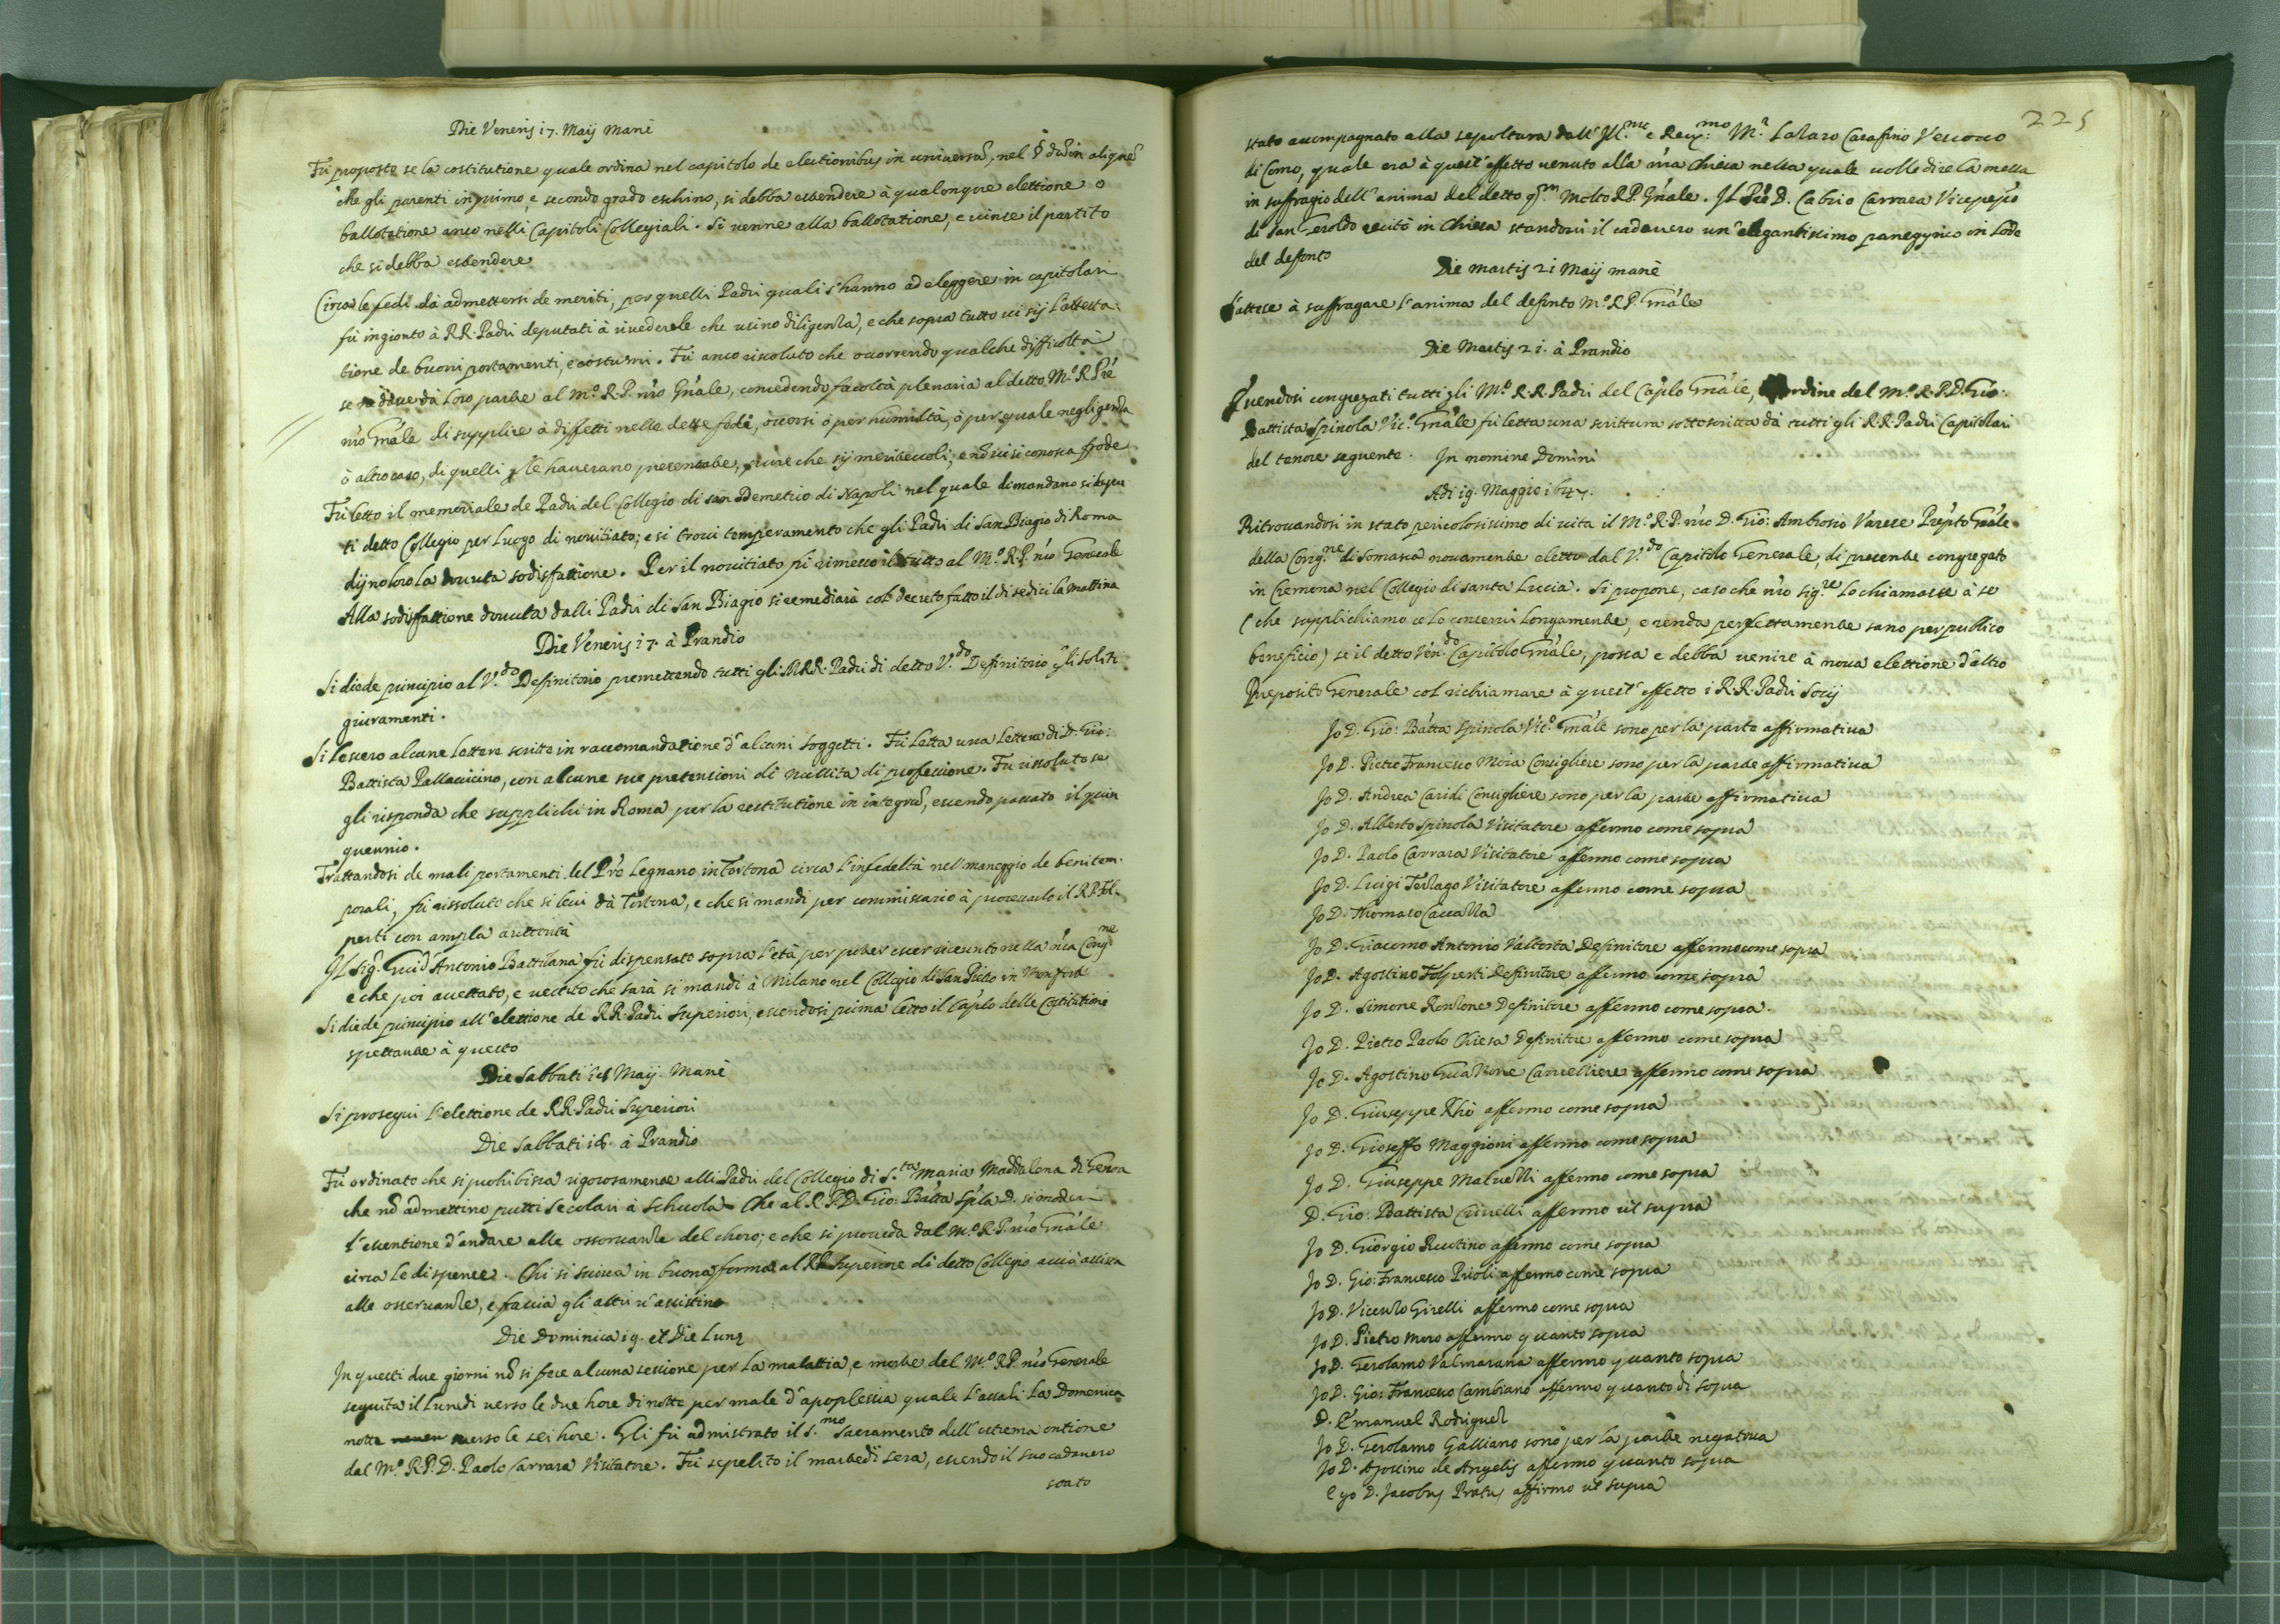 Die Veneris 17. Maij Manè
Fù proposto se la costitutione quale ordina nel capitolo de electionibus in universũ, nel § dũ in aliquẽ
che gli parenti in primo, e secondo grado eschino, si debba estendere à qualonque elettione o
ballotatione anco nelli Capitoli Collegiali. Si venne alla ballotatione, e vinse il partito
che si debba estendere
Circa le fedi dà admettersi de meriti, per quelli Padri quali s'hanno ad eleggere in capitolari
fù ingionto à RR. Padri deputati à rivederle che usino diligenza, e che sopra tutto vi sij l'attesta-
tione de buoni portamenti, e costumi. Fù anco risoluto che occorrendo qualche difficoltà
se ne dia da loro parte al M.º R.P. nr̃o Gñale, concedendo facoltà plenaria al detto M.º R. Prẽ
nr̃o Gñale di supplire à diffetti nelle dette fedi, occorsi ò per humiltà, ò per quale negligenza
ò altro caso, di quelli che le haverano presentate, pure che sij meritevoli, e nõ vi si conosca frode
Fù letto il memoriale de Padri del Collegio di san Demetrio di Napoli nel quale dimandano si deputi
ti detto Collegio per luogo di novitiato; e si trovi temperamento che gli Padri di San Biagio di Roma
dijno loro la dovuta sodisfattione. Per il novitiato si rimesse il tutto al M.º R.P. nr̃o Generale
Alla sodisfattione dovuta dalli Padri di San Biagio si remediarà col decreto fatto il dì sedici la mattina
Die Veneris 17. à Prandio
Si diede principio al V.do Definitorio premettendo tutti gli M.RR. Padri di detto V.do Definitorio gli soliti
giuramenti.
Si lessero alcune lettere scritte in raccomandatione d'alcuni soggetti. Fù letta una lettera di D. Gio:
Battista Pallavicino, con alcune sue pretensioni di nullità di professione. Fù rissoluto se
gli risponda che supplichi in Roma per la restitutione in integrũ, essendo passato il quin
quennio.
Trattandosi de mali portamenti del Prẽ Legnano in Tortona circa l'infedeltà nel maneggio de beni tem-
porali, fù rissoluto che si levi dà Tortona, e che si mandi per commissario à processarlo il R.P. Fol-
perti con ampla auttorità
Il Sig.r Guid'Antonio Battilana fù dispensato sopra l'età per poter esser ricevuto nella nr̃a Cong.ne
e che poi accettato, e vestito che sarà si mandi à Milano nel Collegio di San Pietro in Monforte
Si diede principio all'elettione de RR. Padri Superiori, essendosi prima letto il Cap̃lo delle Costitutioni
spettante à questo
Die Sabbati 18 Maij. Manè
Si proseguì l'elettione de RR. Padri Superiori
Die Sabbati 18. à Prandio
Fù ordinato che si prohibisca rigorosamente alli Padri del Collegio di S.ta Maria Maddalena di Genoa
che nõ admettino putti secolari à schuola. Che al R.P.D. Gio: Batt̃a Sp̃la D. si moderi
l'essentione d'andare alle osservanze del choro; e che si proveda dal M.º R.P. nr̃o Gñale
circa le dispense. Chi si scriva in buona forma al RP Superiore di detto Collegio acciò assista
alle osservanze, e faccia gli altri v'assistino
Die Dominica 19. et Die Lunę
In questi due giorni nõ si fece alcuna sessione per la malattia, e morte del M.º R.P. nr̃o Generale
seguita il Lunedì verso le due hore di notte per male d'apoplessia quale l'assalì la Domenica
notte verso le sei hore. Gli fù admistrato il S.mo Sacramento dell'estrema ontione
dal M.º R.P.D. Paolo Carrara Visitatore. Fù sepelito il martedì sera, essendo il suo cadavero
stato
225
stato accompagnato alla sepoltura dall'Ill.mo e Rev.mo M.r Lazaro Carafino Vescovo
di Como, quale era à quest'effetto venuto alla nr̃a Chiesa nella quale volle dire la messa
in suffragio dell'anima del detto q.m Molto R.P. Gñale. Il Prẽ D. Cabrio Carrara Vicepreposito
di San Geroldo recitò in Chiesa standovi il cadavero un'elegantissimo panegyrico in lode
del defonto
Die Martis 21 Maij manè
S'attese à suffragare l'anima del defonto M.º R.P. Gñale
Die Martis 21. à Prandio
Essendosi congregati tutti gli M.ti R.R. Padri del Cap̃lo Gñale, ordine del M.º R.P.D. Gio:
Battista Spinola Vic.º Gñale fù letta una scrittura sottoscritta dà tutti gli R.R. Padri Capitolari
del tenore seguente. In nomine Domini
Adì 19. Maggio 1647.
Ritrovandosi in stato pericolosissimo di vita il M.º R.P. nr̃o D. Gio: Ambrosio Varese Prep̃to Gñale
della Cong.ne di Somasca novamente eletto dal V.do Capitolo Generale, di presente congregato
in Cremona nel Collegio di santa Luccia. Si propone, caso che nr̃o Sig.re lo chiamasse à se
(che supplichiamo ce lo conservi longamente, e renda perfettamente sano per publico
beneficio) se il detto Ven.do Capitolo Gñale, possa e debba venire à nova elettione d'altro
Preposito Generale col richiamare à quest'effetto i R.R. Padri Socij
Io D. Gio: Batt̃a Spinola Vic.º Gñale sono per la parte affirmativa
Io D. Pietro Francesco Moia Consigliere sono per la parte affirmativa
Io D. Andrea Caridi Consigliere sono per la parte affirmativa
Io D. Alberto Spinola Visitatore affermo come sopra
Io D. Paolo Carrara Visitatore affermo come sopra
Io D. Luigi Terzago Visitatore affermo come sopra
Io D. Thomaso Caccazza
Io D. Giacomo Antonio Valtorta Definitore affermo come sopra
Io D. Agostino Folperti Definitore affermo come sopra
Io D. Simone Ronzone Definitore affermo come sopra.
Io D. Pietro Paolo Chiesa Definitore affermo come sopra
Io D. Agostino Guazzone Cancelliere affermo come sopra
Io D. Giuseppe Rhò affermo come sopra
Io D. Gioseffo Maggioni affermo come sopra
Io D. Giuseppe Malvezzi affermo come sopra
D. Gio: Battista Crivelli affermo ut supra
Io D. Giorgio affermo come sopra
Io D. Gio: Francesco Prioli affermo come sopra
Io D. Vicenzo Girelli affermo come sopra
Io D. Pietro Moro affermo quanto sopra
Io D. Gerolamo Valmarana affermo quanto sopra
Io D. Gio: Francesco Cambiano affermo quanto di sopra
D. Emanuel Rodriguez
Io D. Gerolamo Galliano sono per la parte negativa
Io D. Agostino de Angelis affermo quanto sopra
Ego D. Jacobus Pratus affirmo ut supra